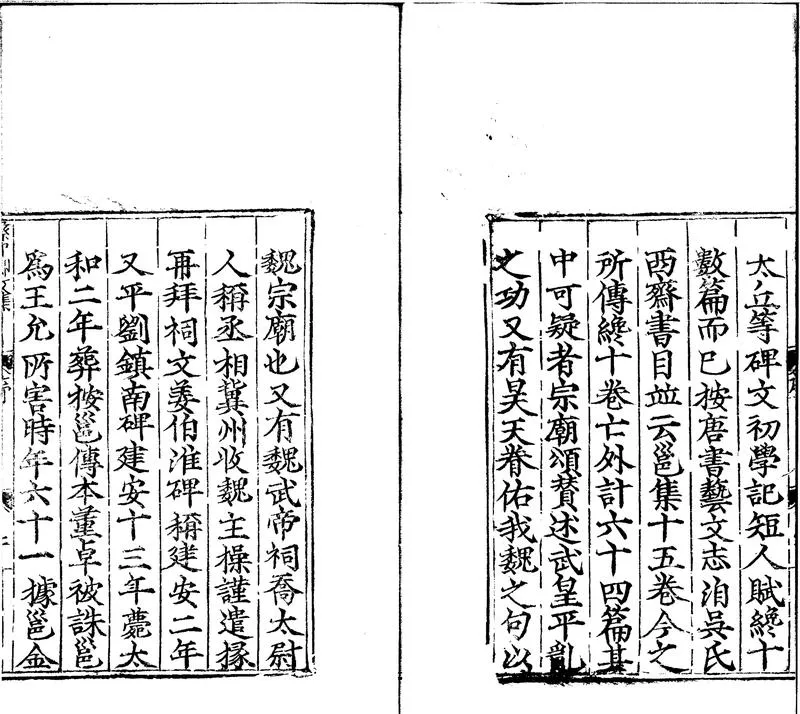 太丘等碑文初學記短人賦纔十
數篇而已按唐書藝文志洎吳氏
西齋書目竝云邕集十五卷今之
所傳纔十卷亡外計六十四篇其
中可疑者宗廟頌賛述武皇平亂
之功又有昊天眷佑我魏之句以
魏宗廟也又有魏武帝祠喬太尉
人稱丞相冀州收魏主操謹遣掾
再拜祠文姜伯淮碑稱建安二年
又平劉鎮南碑建安十三年薨太
和二年葬按邕傳本董卓被誅邕
爲王允所害時年六十一據邕金